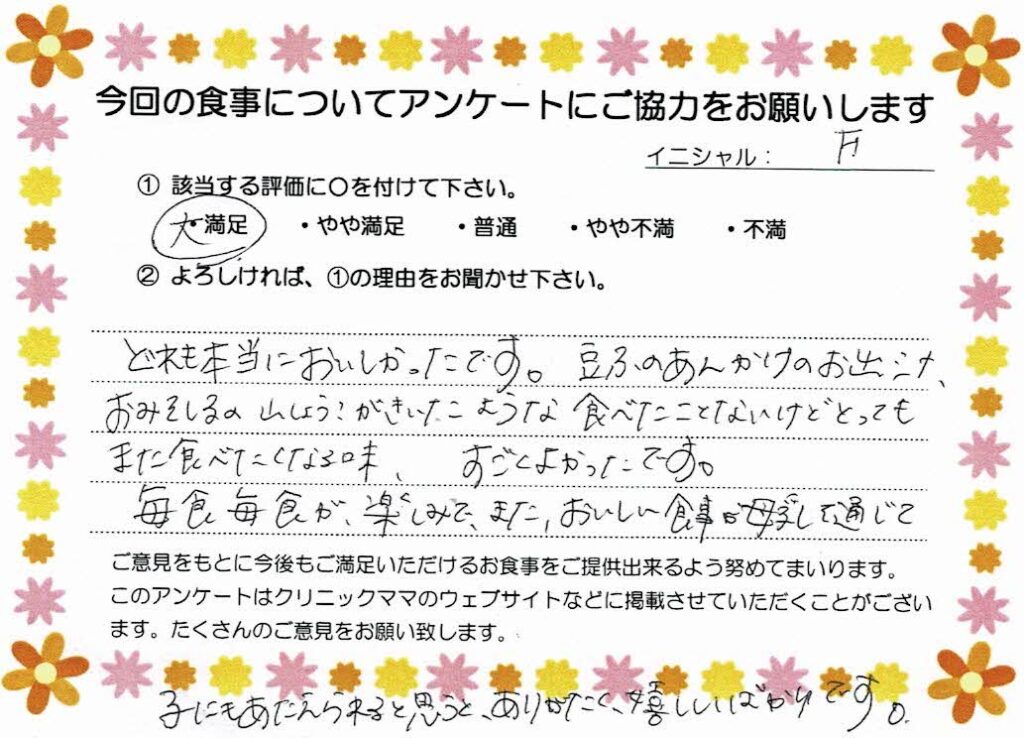 今回の食事についてアンケートにご協力をお願いします
イニシャル： F.
① 該当する評価に〇を付けて下さい。
大満足 ・やや満足 ・普通 ・やや不満 ・不満
② よろしければ、①の理由をお聞かせ下さい。
どれも本当においしかったです。豆ふのあんかけのお出汁、
おみそしるの山しょう？がきいたような食べたことないけどとっても
また食べたくなる味、すごくよかったです。
毎食毎食が、楽しみで、また、おいしい食事が母乳を通じて
ご意見をもとに今後もご満足いただけるお食事をご提供出来るよう努めてまいります。
このアンケートはクリニックママのウェブサイトなどに掲載させていただくことがござい
ます。たくさんのご意見をお願い致します。
子にもあたえられると思うと、ありがたく、嬉しいばかりです。